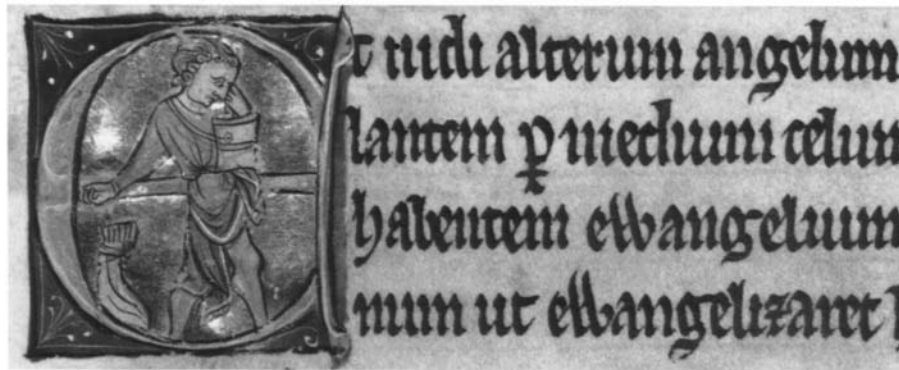 Et uidi alterum angelum
lantem ꝑ medium celum
habentem ewangelium
num ut ewangelizaret